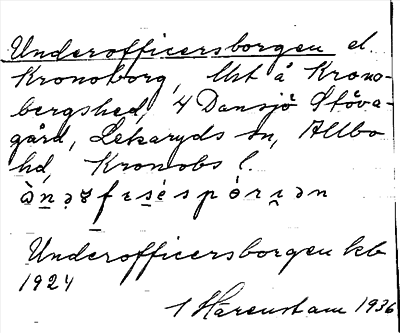 Underofficersborgen el.
Kronoborg, lht å Krono-
bergshed, 4 Dansjö Stöva-
gård, Lekaryds sn, Allbo
hd, Kronobs l.
Underofficersborgen kb
1924
1 Härenstam 1936